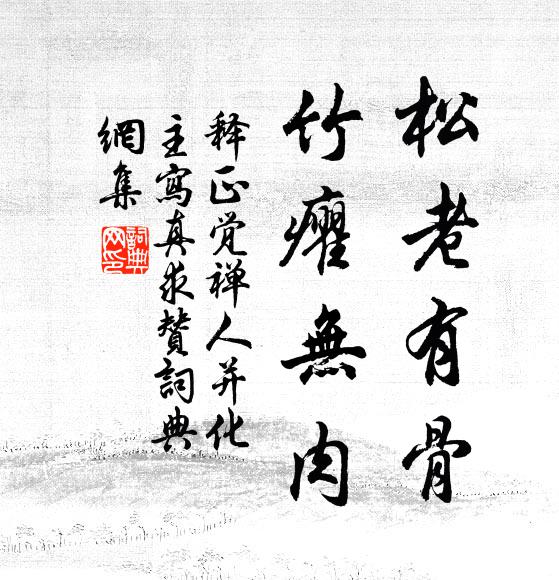 松老有骨
竹癯無肉
释正觉禅人并化
主寫真求赞詞典
網集
詞典
网印